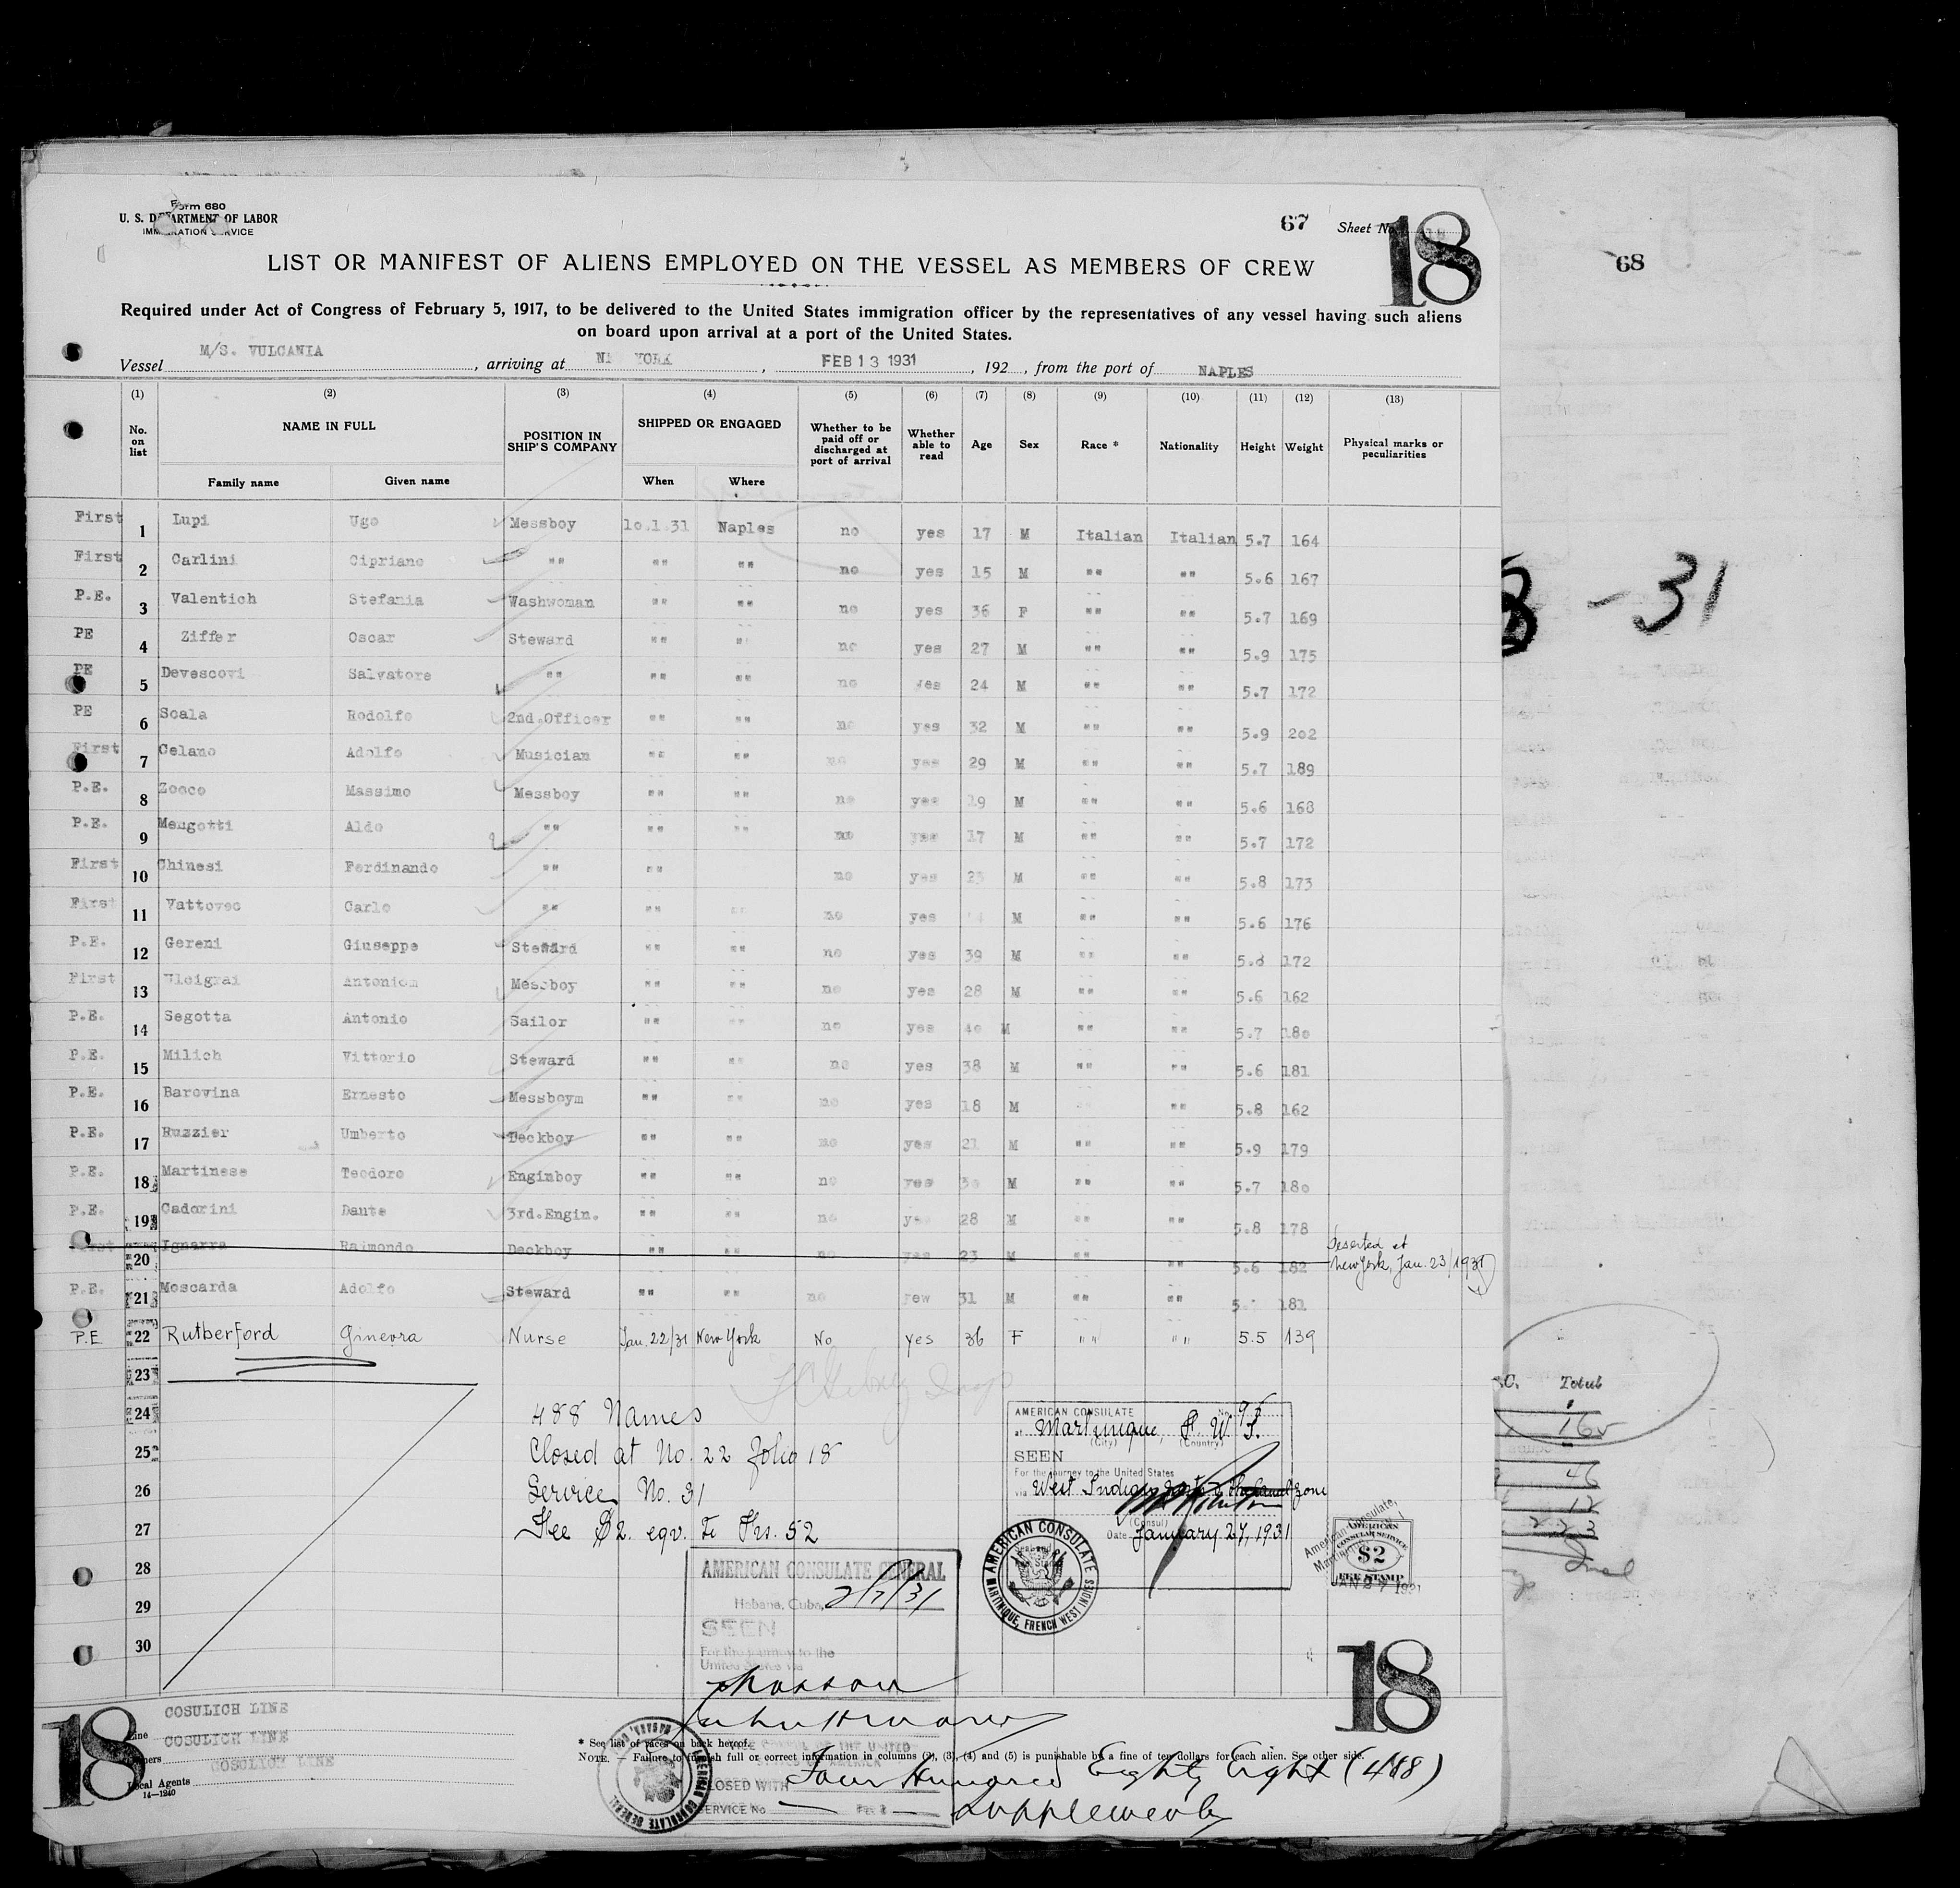 Form 680
U. S. DEPARTMENT OF LABOR
IMMIGRATION SERVICE
67 Sheet No. 18
68
LIST OR MANIFEST OF ALIENS EMPLOYED ON THE VESSEL AS MEMBERS OF CREW
Required under Act of Congress of February 5, 1917, to be delivered to the United States immigration officer by the representatives of any vessel having such aliens
on board upon arrival at a port of the United States.
Vessel M/S. VULCANIA, arriving at NEW YORK, FEB 13 1931, 192 , from the port of NAPLES
(1) (2) (3) (4) (5) (6) (7) (8) (9) (10) (11) (12) (13)
No. on list NAME IN FULL Family name Given name POSITION IN SHIP'S COMPANY SHIPPED OR ENGAGED When Where Whether to be paid off or discharged at port of arrival Whether able to read Age Sex Race * Nationality Height Weight Physical marks or peculiarities
First 1 Lupi Ugo Messboy 10.1.31 Naples no yes 17 M Italian Italian 5.7 164
First 2 Carlini Cipriano "" "" "" no yes 15 M "" "" 5.6 167
P.E. 3 Valentich Stefania Washwoman "" "" no yes 36 F "" "" 5.7 169
PE 4 Ziffer Oscar Steward "" "" no yes 27 M "" "" 5.9 175
PE 5 Devescovi Salvatore "" "" "" no yes 24 M "" "" 5.7 172
PE 6 Scala Rodolfo 2nd.Officer "" "" no yes 32 M "" "" 5.9 202
First 7 Celano Adolfo Musician "" "" no yes 29 M "" "" 5.7 189
P.E. 8 Zocco Massimo Messboy "" "" no yes 19 M "" "" 5.6 168
P.E. 9 Mengotti Aldo "" "" "" no yes 17 M "" "" 5.7 172
First 10 Chinesi Ferdinando "" "" no yes 23 M "" "" 5.8 173
First 11 Vattovec Carlo "" "" "" no yes M "" "" 5.6 176
P.E. 12 Gereni Giuseppe Steward "" "" no yes 39 M "" "" 5.8 172
First 13 Ulcigrai Antonion Messboy "" "" no yes 28 M "" "" 5.6 162
P.E. 14 Segotta Antonio Sailor "" "" no yes 40 M "" "" 5.7 180
P.E. 15 Milich Vittorio Steward "" "" no yes 38 M "" "" 5.6 181
P.E. 16 Barovina Ernesto Messboym "" "" no yes 18 M "" 5.8 162
P.E. 17 Ruzzier Umberto Deckboy "" "" no yes 21 M "" "" 5.9 179
P.E. 18 Martinese Teodoro Enginboy "" "" no yes 30 M "" "" 5.7 180
P.E. 19 Cadorini Dante 3rd.Engin. "" "" no yes 28 M "" "" 5.8 178
First 20 Ignarra Raimondo Deckboy "" "" no yes 23 M "" "" 5.6 182 Deserted at New York, Jan. 23/1931
P.E. 21 Moscarda Adolfo Steward "" "" no yew 31 M "" "" 5. 181
P.E 22 Rutherford Ginevra Nurse Jan. 22/31 New York No yes 36 F "" "" 5.5 139
23
24
25
26
27
28
29
30
488 Names
Closed at No. 22 folio 18
Service No. 31
Fee $2. eqv. to Frs. 52
AMERICAN CONSULATE No. 95
at Martinique, F. W. I.
(City) (Country)
SEEN
For the journey to the United States
via West Indies
(Consul)
Date January 27, 1931
AMERICAN CONSULATE
MARTINIQUE, FRENCH WEST INDIES
American Consulate, Martinique
AMERICAN CONSULAR SERVICE
$2
FEE STAMP
JAN 27 1931
AMERICAN CONSULATE GENERAL
Habana, Cuba, 2/7/31
SEEN
For the journey to the
United States via
VICE CONSUL OF THE UNITED
STATES OF AMERICA
CLOSED WITH Four Hundred Eighty Eight (488)
SERVICE No.
AMERICAN CONSULATE GENERAL
HABANA, CUBA
18
18
Line COSULICH LINE
Owners COSULICH LINE
Local Agents COSULICH LINE
14—1240
* See list of races on back hereof.
NOTE. — Failure to furnish full or correct information in columns (2), (3), (4) and (5) is punishable by a fine of ten dollars for each alien. See other side.
8 - 31
C. Total
165
46
12
223